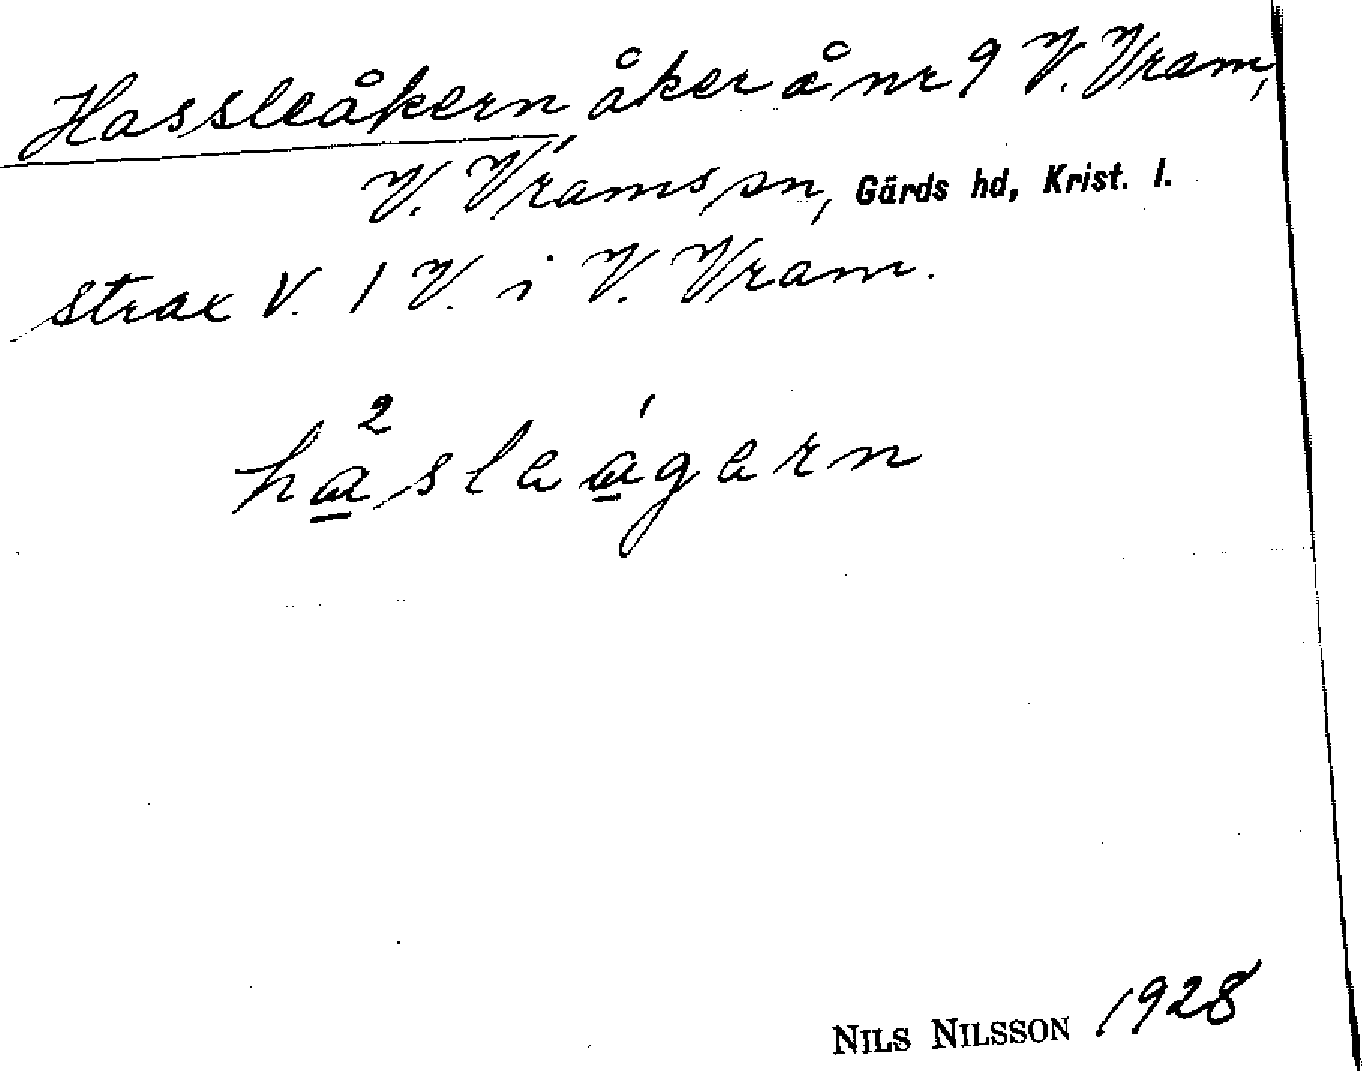 Hassleåkern, åker å nr 9 V. Vram,
V. Vrams sn, Gärds hd, Krist. l.
strax V. 1 V. i V. Vram.
ha²sleágern
NILS NILSSON 1928